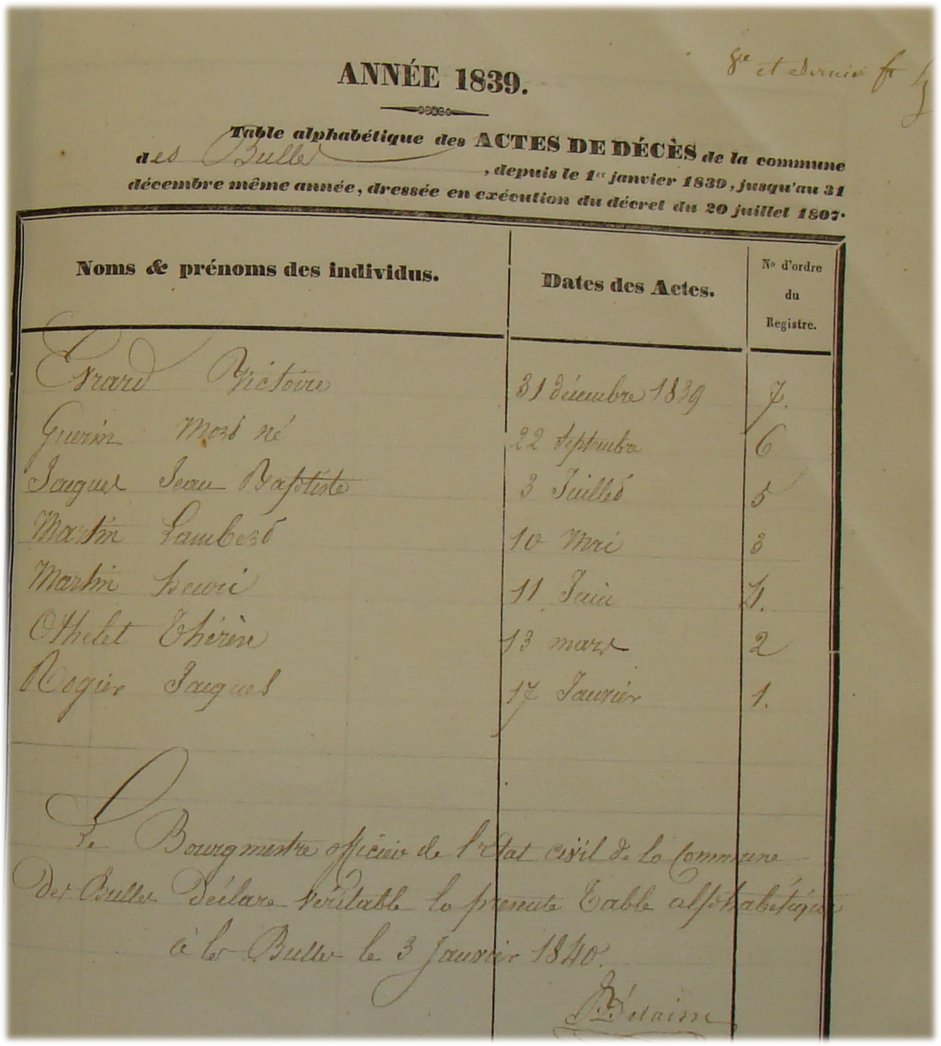 8e et dernier f
ANNÉE 1839.
Table alphabétique des ACTES DE DÉCÈS de la commune
des Bulles, depuis le 1er janvier 1839, jusqu'au 31
décembre même année, dressée en exécution du décret du 20 juillet 1807.
Noms & prénoms des individus. Dates des Actes. No d'ordre du Registre.
Evrard Victoire 31 décembre 1839 7.
Guerin Mort né 22 Septembre 6
Jacques Jean Baptiste 3 Juillet 5
Martin Lambert 10 Mai 3
Martin henri 11 Juin 4.
Othelet Thérèse 13 mars 2
Rogier Jacques 17 Janvier 1.
Le Bourgmestre officier de l'Etat civil de la Commune
Des Bulles Déclare Véritable la présente Table alphabétique
à les Bulles le 3 Janvier 1840.